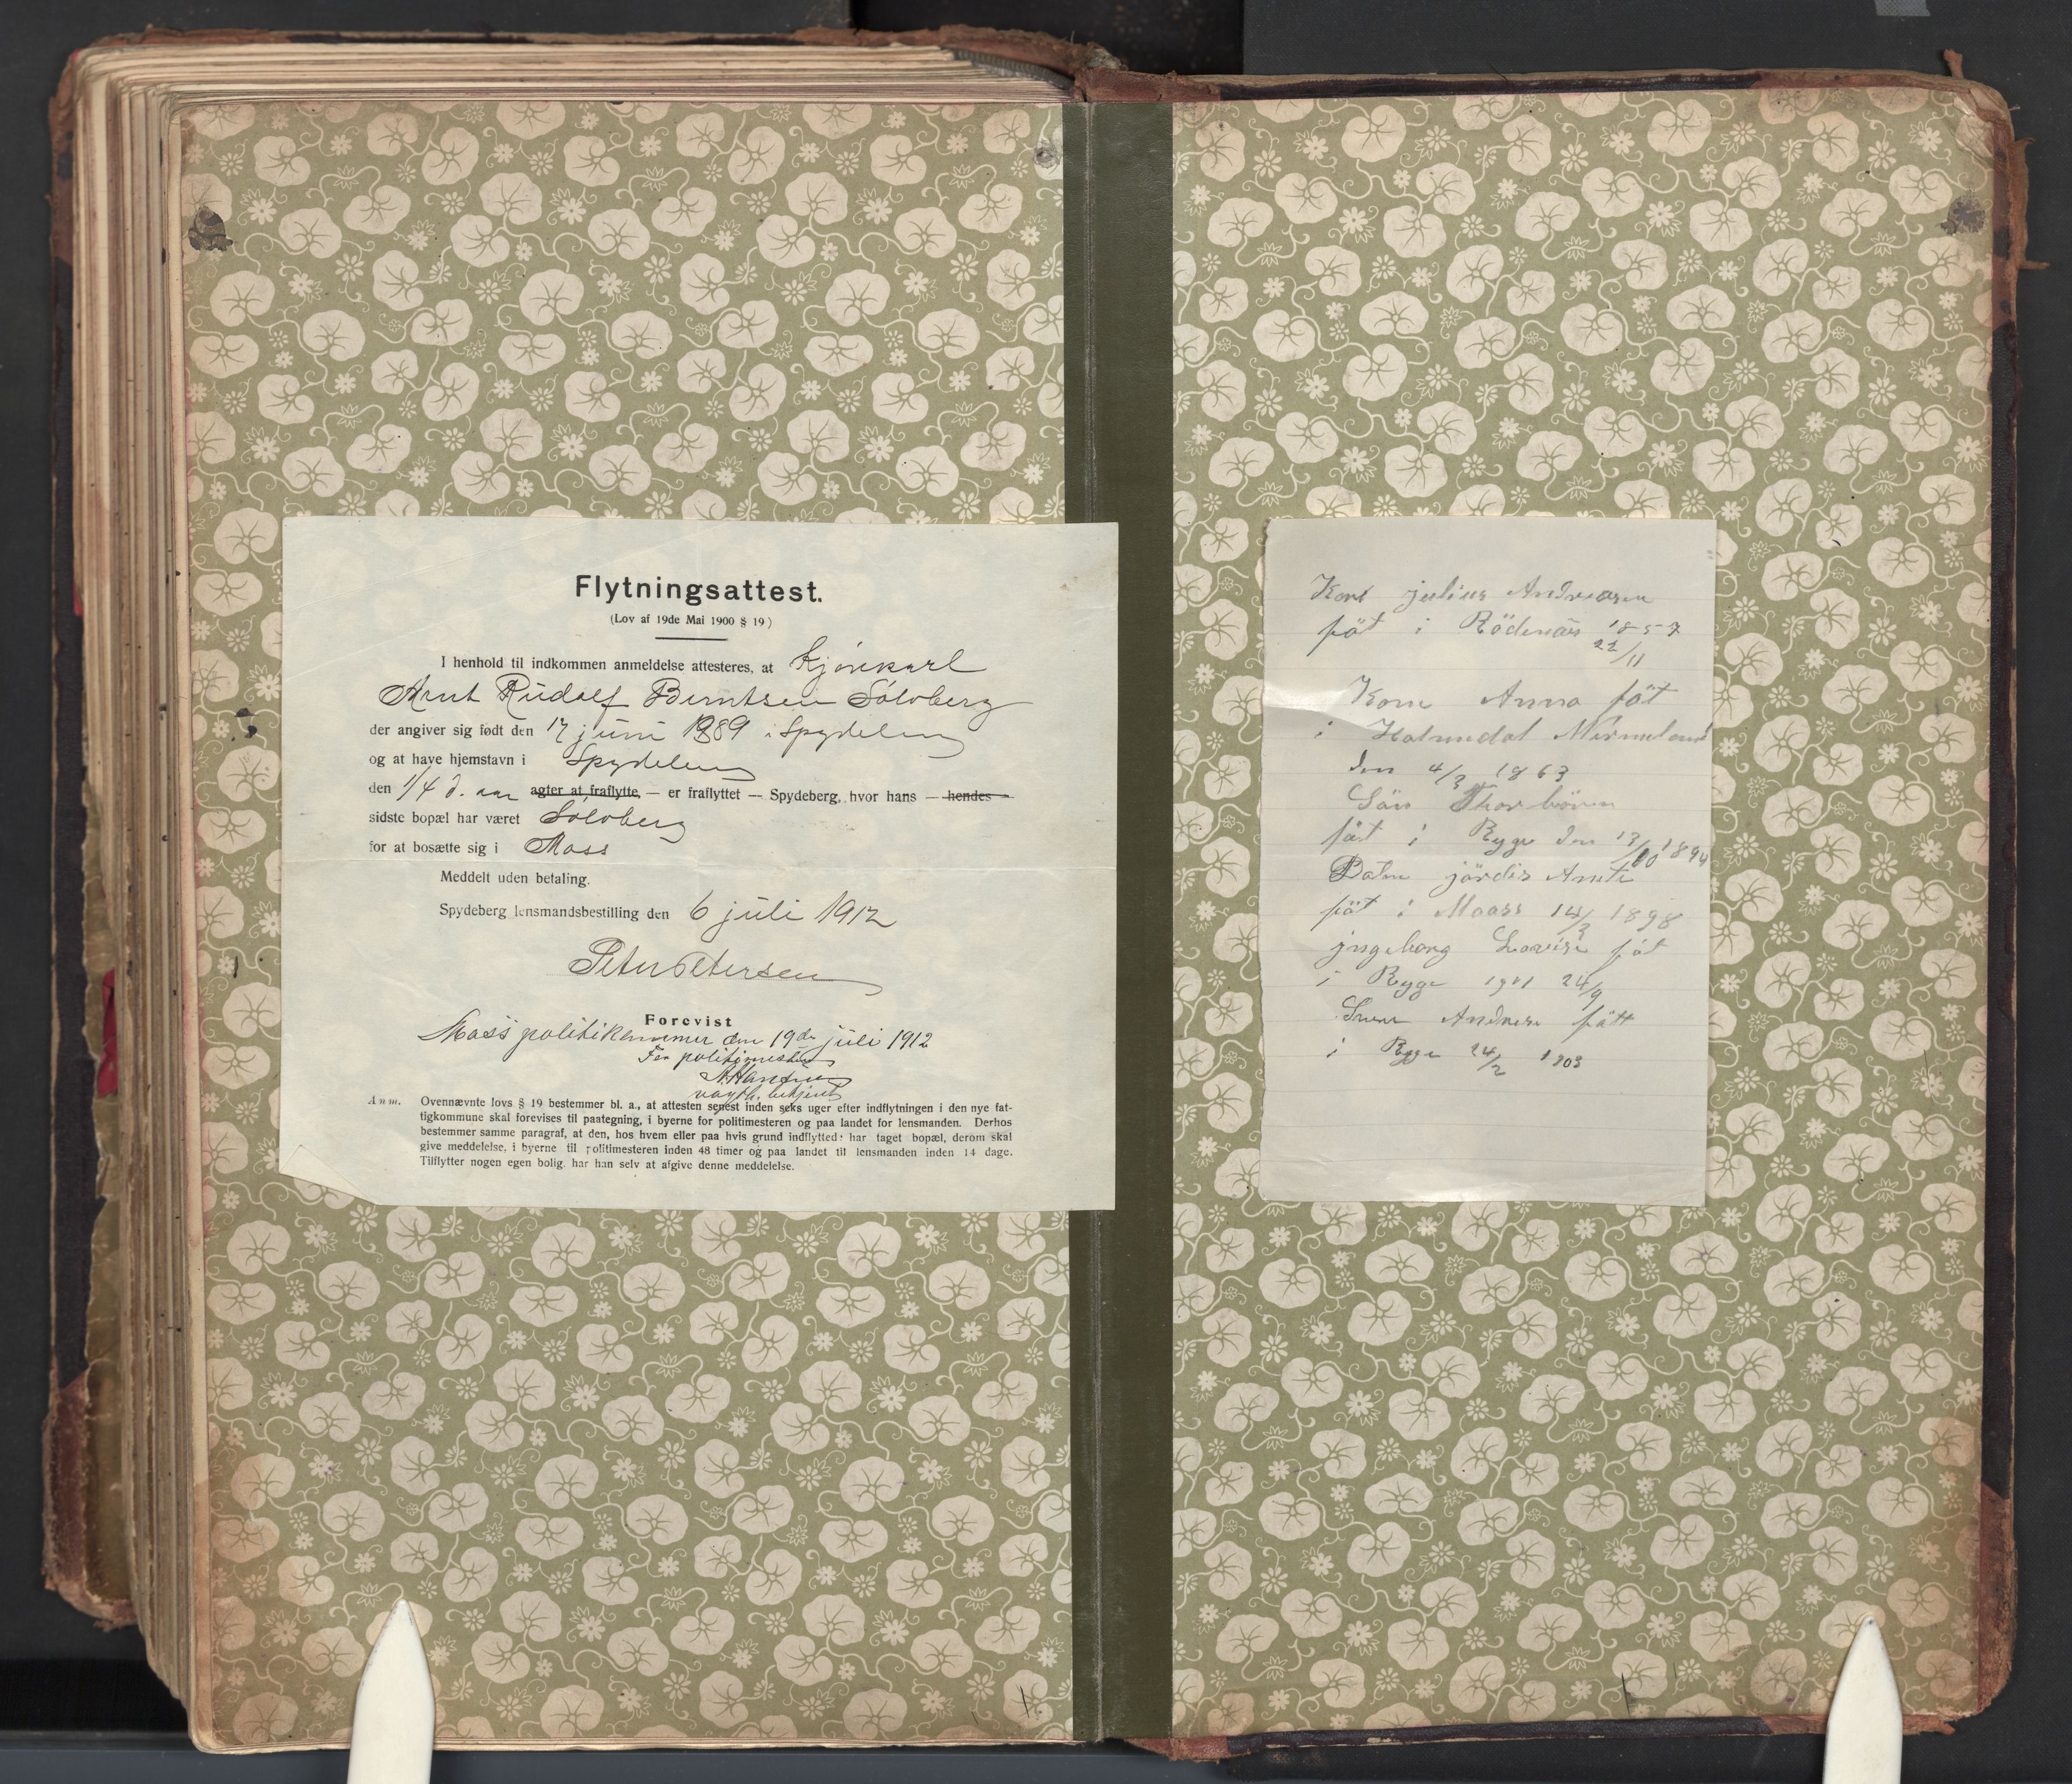 Flytningsattest.
(Lov af 19de Mai 1900 § 19)
I henhold til indkommen anmeldelse attesteres, at Kjørekarl
Arnt Rudolf Berntsen Soloberg
der angiver sig født den 17 juni 1889 i Spydeberg
og at have hjemstavn i Spydeberg
den 1/4 d. aar agter at fraflytte, — er fraflyttet — Spydeberg, hvor hans — hendes
sidste bopæl har været Soloberg
for at bosætte sig i Moss
Meddelt uden betaling.
Spydeberg lensmandsbestilling den 6 juli 1912
Peter Petersen
Forevist
Moss politikammer den 19de juli 1912
For politimesteren
A. Hansen
Anm. Ovennævnte lovs § 19 bestemmer bl. a., at attesten senest inden seks uger efter indflytningen i den nye fat-
tigkommune skal forevises til paategning, i byerne for politimesteren og paa landet for lensmanden. Derhos
bestemmer samme paragraf, at den, hos hvem eller paa hvis grund indflytteder har taget bopæl, derom skal
give meddelelse, i byerne til politimesteren inden 48 timer og paa landet til lensmanden inden 14 dage.
Tilflytter nogen egen bolig, har han selv at afgive denne meddelelse.
Karl julius Andreasen
föt i Rödenäs 1857
22/11
Kone Anna föt
i Holmedal Vermeland
den 4/3 1863
Sön Thorbörn
föt i Rygge den 13/10 1894
Datm jördis Anete
föt i Maass 14/3 1898
jngeborg Lovise föt
i Rygge 1901 24/9
Sven Andreas fött
i Rygge 24/2 1903